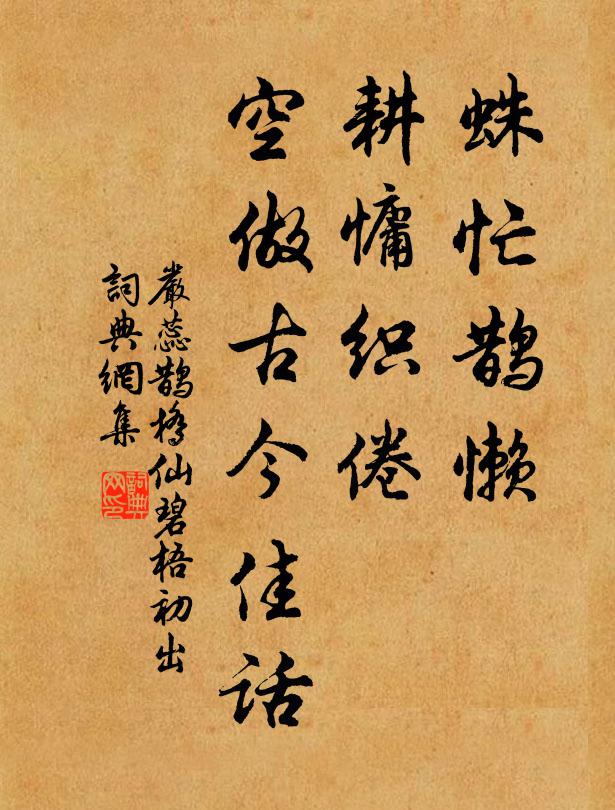 蛛忙鹊懒
耕慵织倦
空做古今佳话
嚴蕊鹊橋仙碧梧初出
詞典網集
詞典
网印